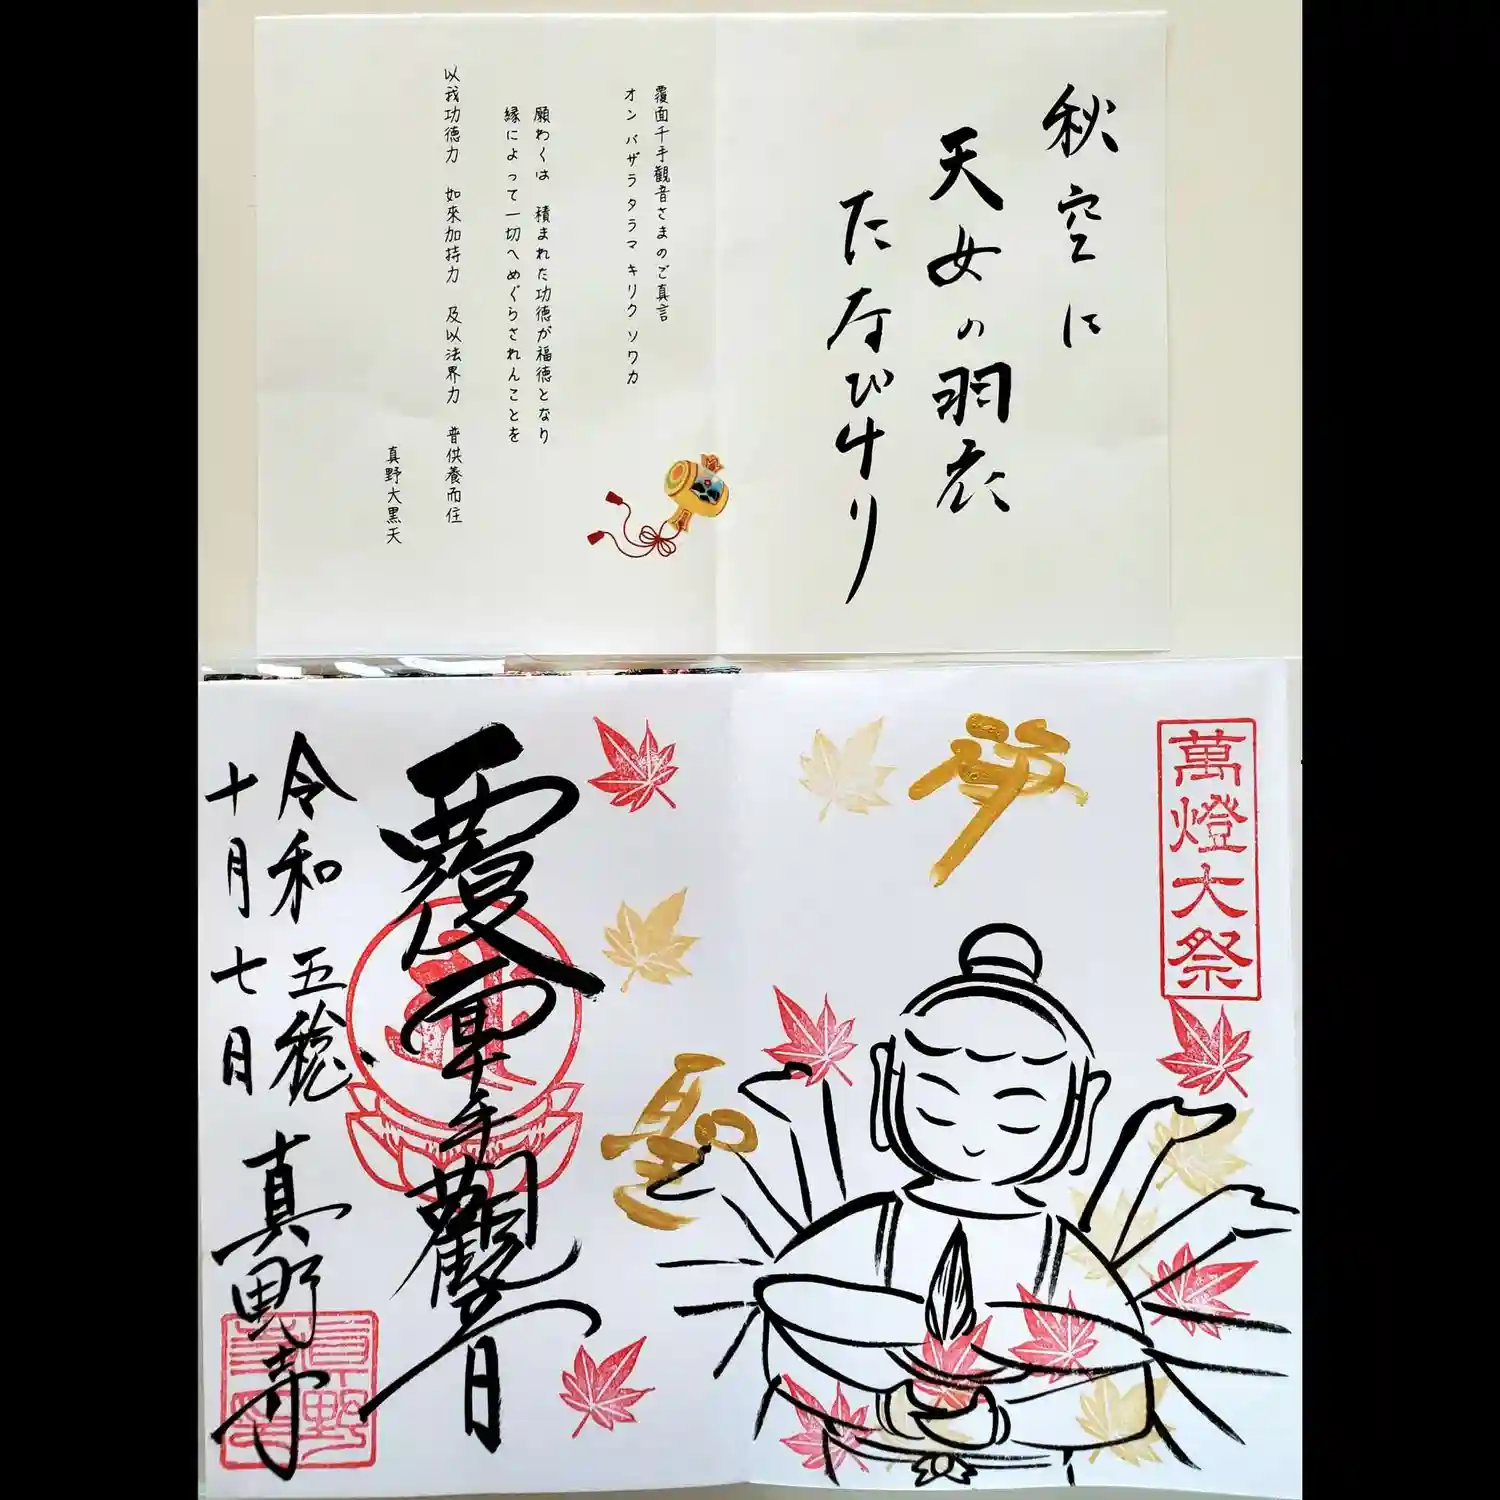 秋空に
天女の羽衣
たなびけり
覆面千手観音さまのご真言
オン バザラ タラマ キリク ソワカ
願わくは 積まれた功徳が福徳となり
縁によって一切へめぐらされんことを
以我功徳力 如來加持力 及以法界力 普供養而住
真野大黒天
萬燈大祭
聖
覆面千手觀音
令和五稔
十月七日
真野寺